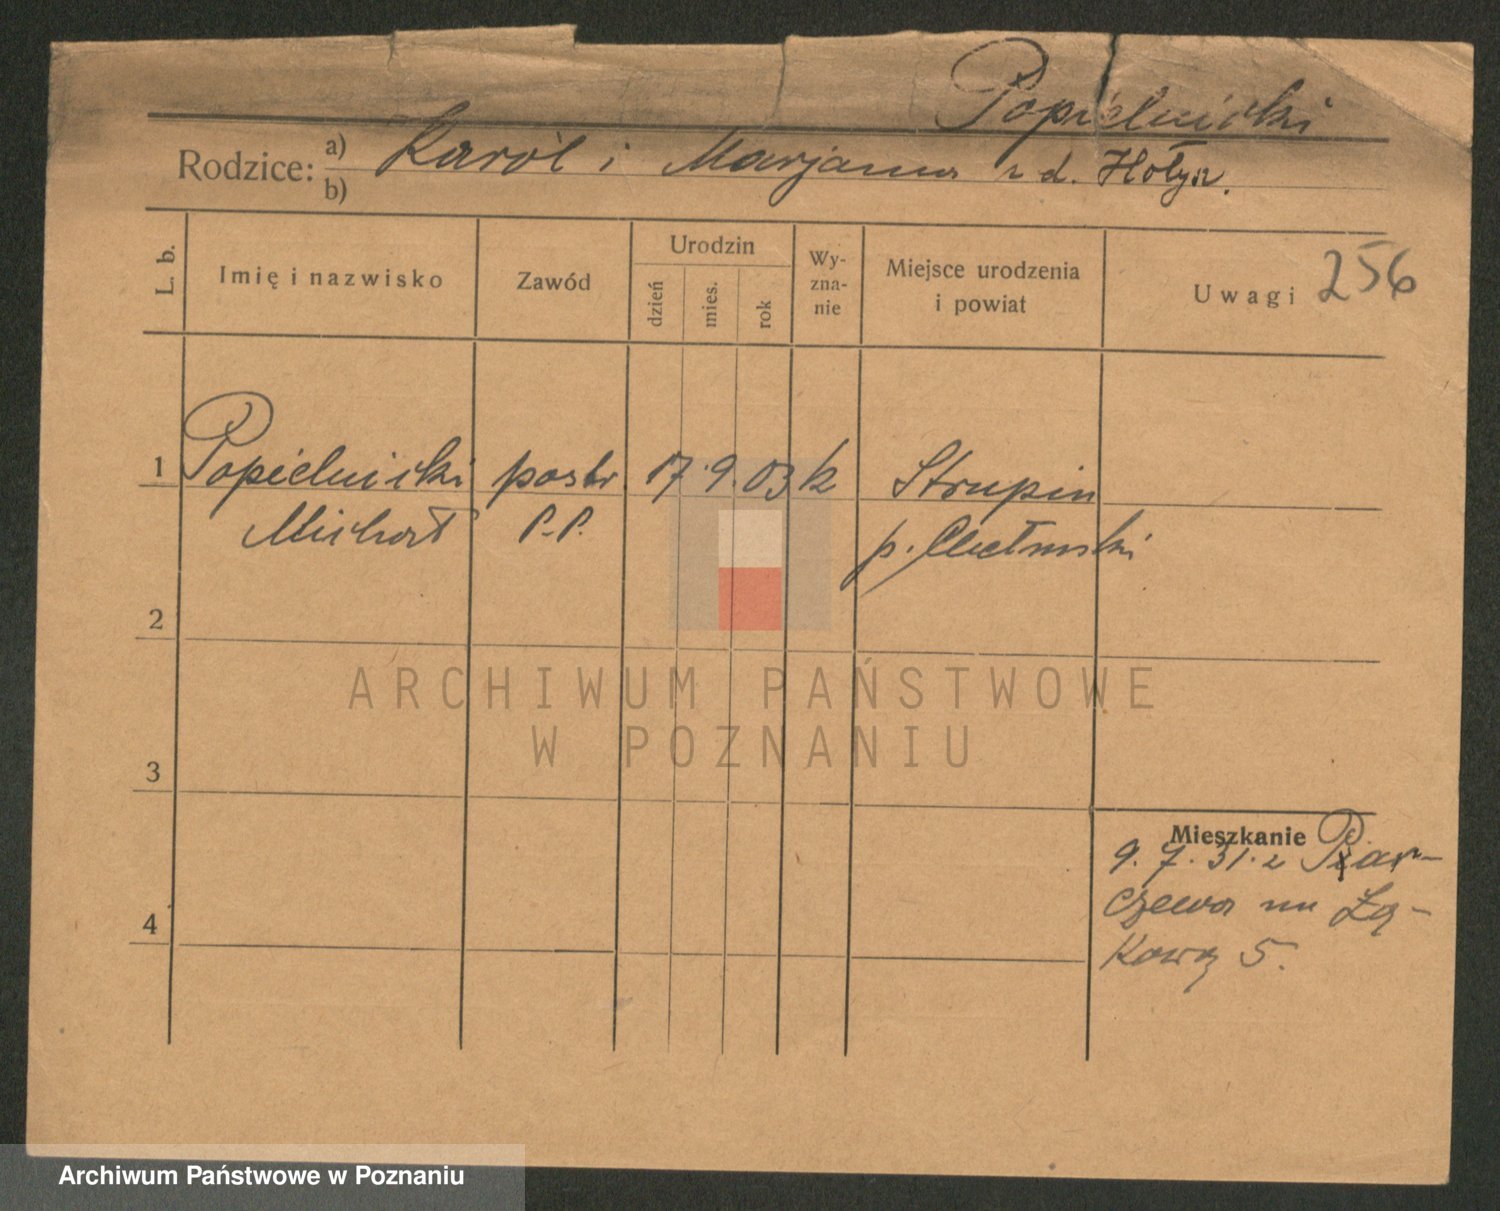 Popielnicki
Rodzice: a) Karol i Marjanna z d. Hołysz.
b)
L. b.
Imię i nazwisko
Zawód
Urodzin
dzień
mies.
rok
Wy-
zna-
nie
Miejsce urodzenia
i powiat
Uwagi 256
1 Popielnicki postr. 17. 9. 03 k Strupin
Michał P.P. p. Chełmski
2
3
4
Mieszkanie
9. 7. 31. z Parczewa
na Łą-
kową 5.
ARCHIWUM PAŃSTWOWE
W POZNANIU
Archiwum Państwowe w Poznaniu